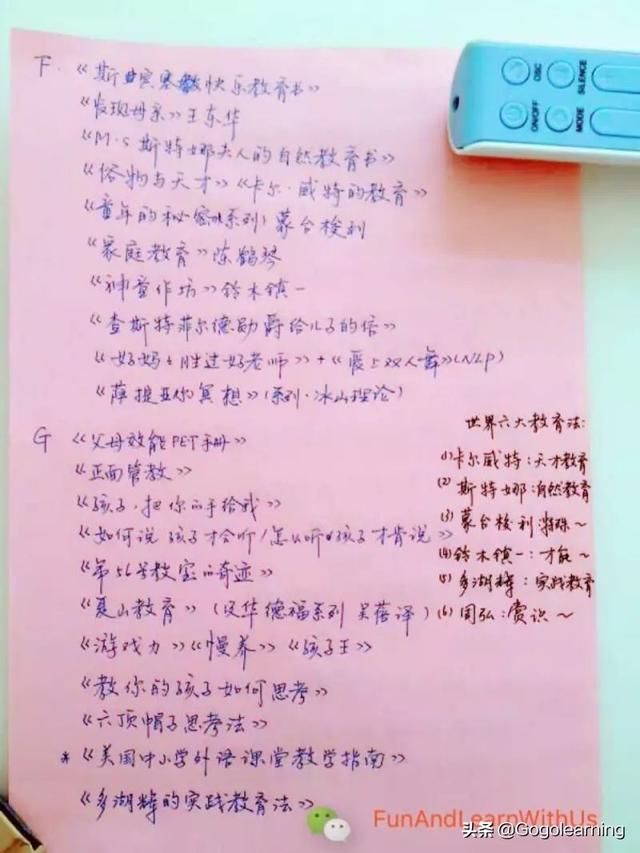 F. 《斯宾塞快乐教育书》
《发现母亲》王东华
《M·S斯特娜夫人的自然教育书》
《俗物与天才》《卡尔·威特的教育》
《童年的秘密》(系列) 蒙台梭利
《家庭教育》陈鹤琴
《神童作坊》铃木镇一
《查斯特菲尔德勋爵给儿子的信》
《好妈妈胜过好老师》+《爱上双人舞》(NLP)
《萨提亚冥想》(系列·冰山理论)
G 《父母效能PET手册》
《正面管教》
《孩子,把你的手给我》
《如何说孩子才会听/怎么听孩子才肯说》
《第56号教室的奇迹》
《夏山教育》(汉华德福系列 吴蓓译)
《游戏力》《慢养》《孩子王》
《教你的孩子如何思考》
《六顶帽子思考法》
*《美国中小学外语课堂教学指南》
《多湖辉的实践教育法》
世界六大教育法:
(1)卡尔威特:天才教育
(2)斯特娜:自然教育
(3)蒙台梭利:特殊~
(4)铃木镇一:才能~
(5)多湖辉:实践教育
(6)周弘:赏识~
OSC
SILENCE
ON/OFF
MODE
FunAndLearnWithUs
头条 @Gogolearning